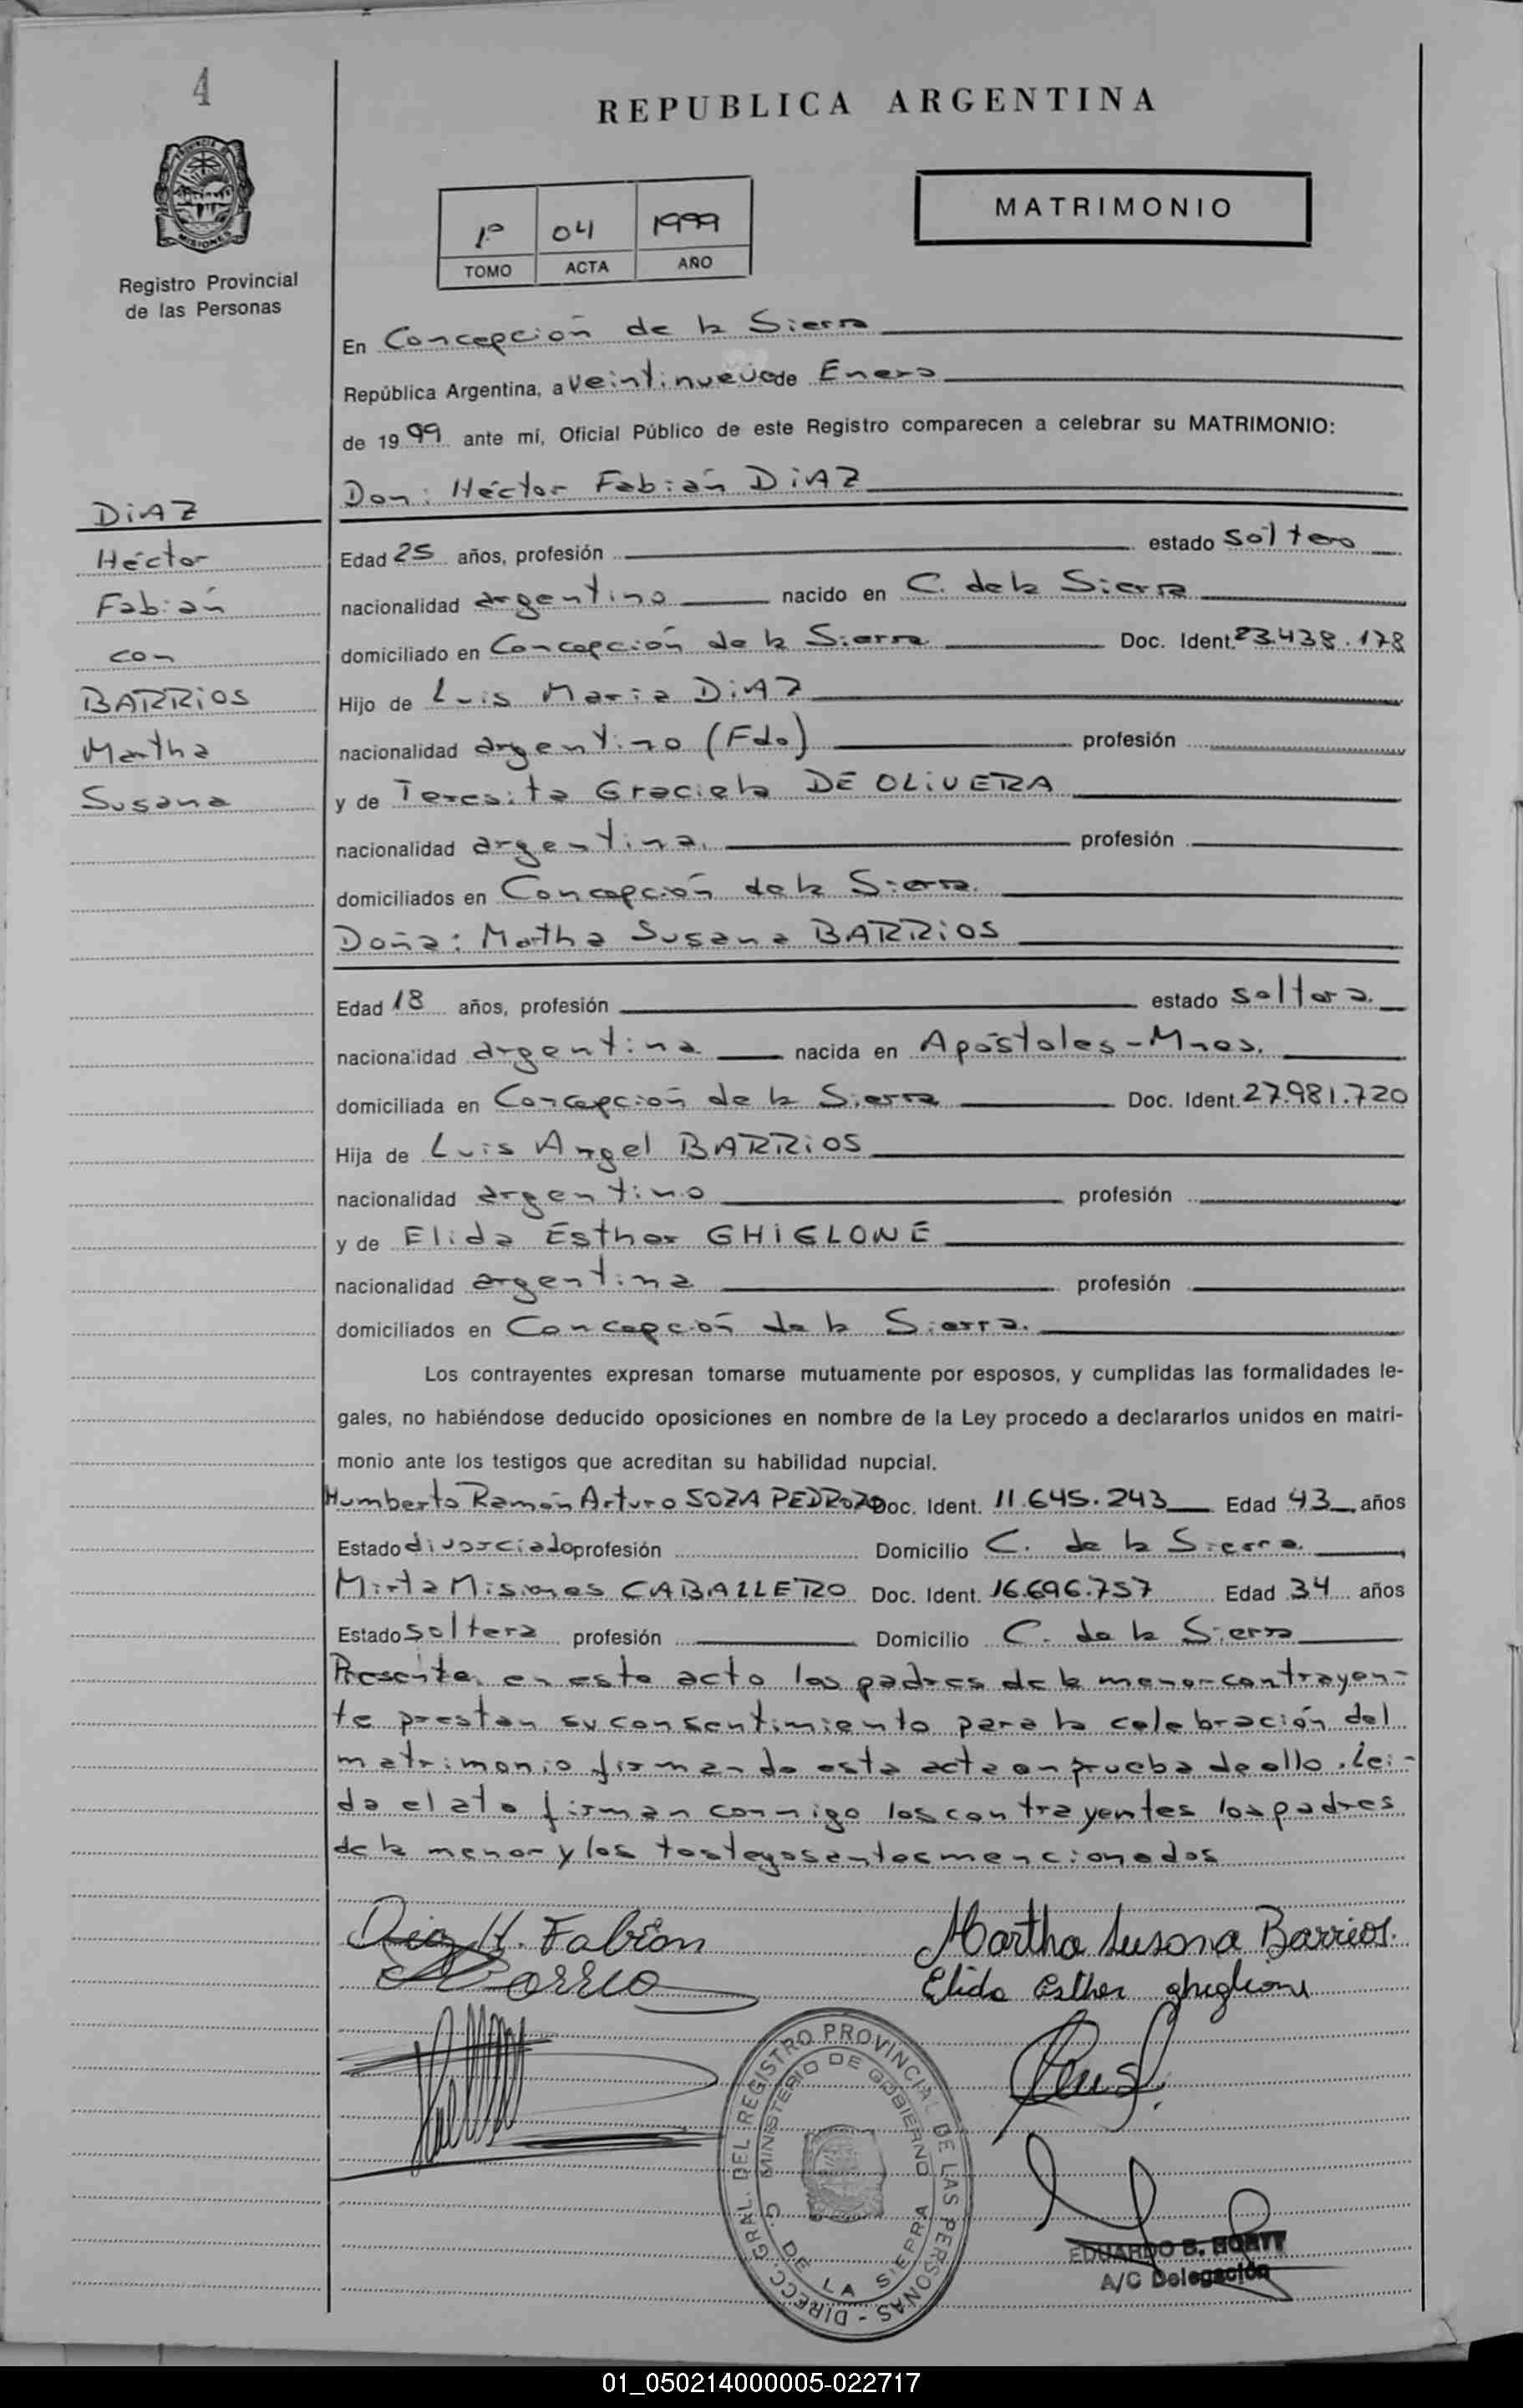 4
REPUBLICA ARGENTINA
MISIONES
Registro Provincial
de las Personas
1º 04 1999
TOMO ACTA AÑO
MATRIMONIO
En Concepción de la Sierra
República Argentina, a veintinueve de Enero
de 1999 ante mí, Oficial Público de este Registro comparecen a celebrar su MATRIMONIO:
Don: Héctor Fabián DiAZ
DiAZ
Héctor
Fabián
con
BARRiOS
Martha
Susana
Edad 25 años, profesión estado soltero
nacionalidad argentino nacido en C. de la Sierra
domiciliado en Concepción de la Sierra Doc. Ident. 23.438.178
Hijo de Luis Maria DiAZ
nacionalidad argentino (Fdo) profesión
y de Teresita Graciela DE OLiVERA
nacionalidad argentina. profesión
domiciliados en Concepción de la Sierra.
Doña: Martha Susana BARRiOS
Edad 18 años, profesión estado soltera.
nacionalidad argentina nacida en Apóstoles-Mnes.
domiciliada en Concepción de la Sierra Doc. Ident. 27.981.720
Hija de Luis Angel BARRiOS
nacionalidad argentino profesión
y de Elida Esther GHiGLONE
nacionalidad argentina profesión
domiciliados en Concepción de la Sierra.
Los contrayentes expresan tomarse mutuamente por esposos, y cumplidas las formalidades le-
gales, no habiéndose deducido oposiciones en nombre de la Ley procedo a declararlos unidos en matri-
monio ante los testigos que acreditan su habilidad nupcial.
Humberto Ramón Arturo SOZA PEDROZO Doc. Ident. 11.645.243 Edad 43 años
Estado divorciado profesión Domicilio C. de la Sierra
Mirta Misiones CABALLERO Doc. Ident. 16.696.757 Edad 34 años
Estado soltera profesión Domicilio C. de la Sierra
Presente en este acto los padres de la menor contrayen-
te prestan su consentimiento para la celebración del
matrimonio firmando esta acta en prueba de ello. Lei-
da el ata firman conmigo los contrayentes los padres
de la menor y los testegos antes mencionados
Diaz H. Fabián
Martha Susana Barrios.
Barrio
Elida Esther ghiglione
DIRECC. GRAL. DEL REGISTRO PROVINCIAL DE LAS PERSONAS -
MINISTERIO DE GOBIERNO
C. DE LA SIERRA
EDUARDO B.
A/C Delegación
01_050214000005-022717